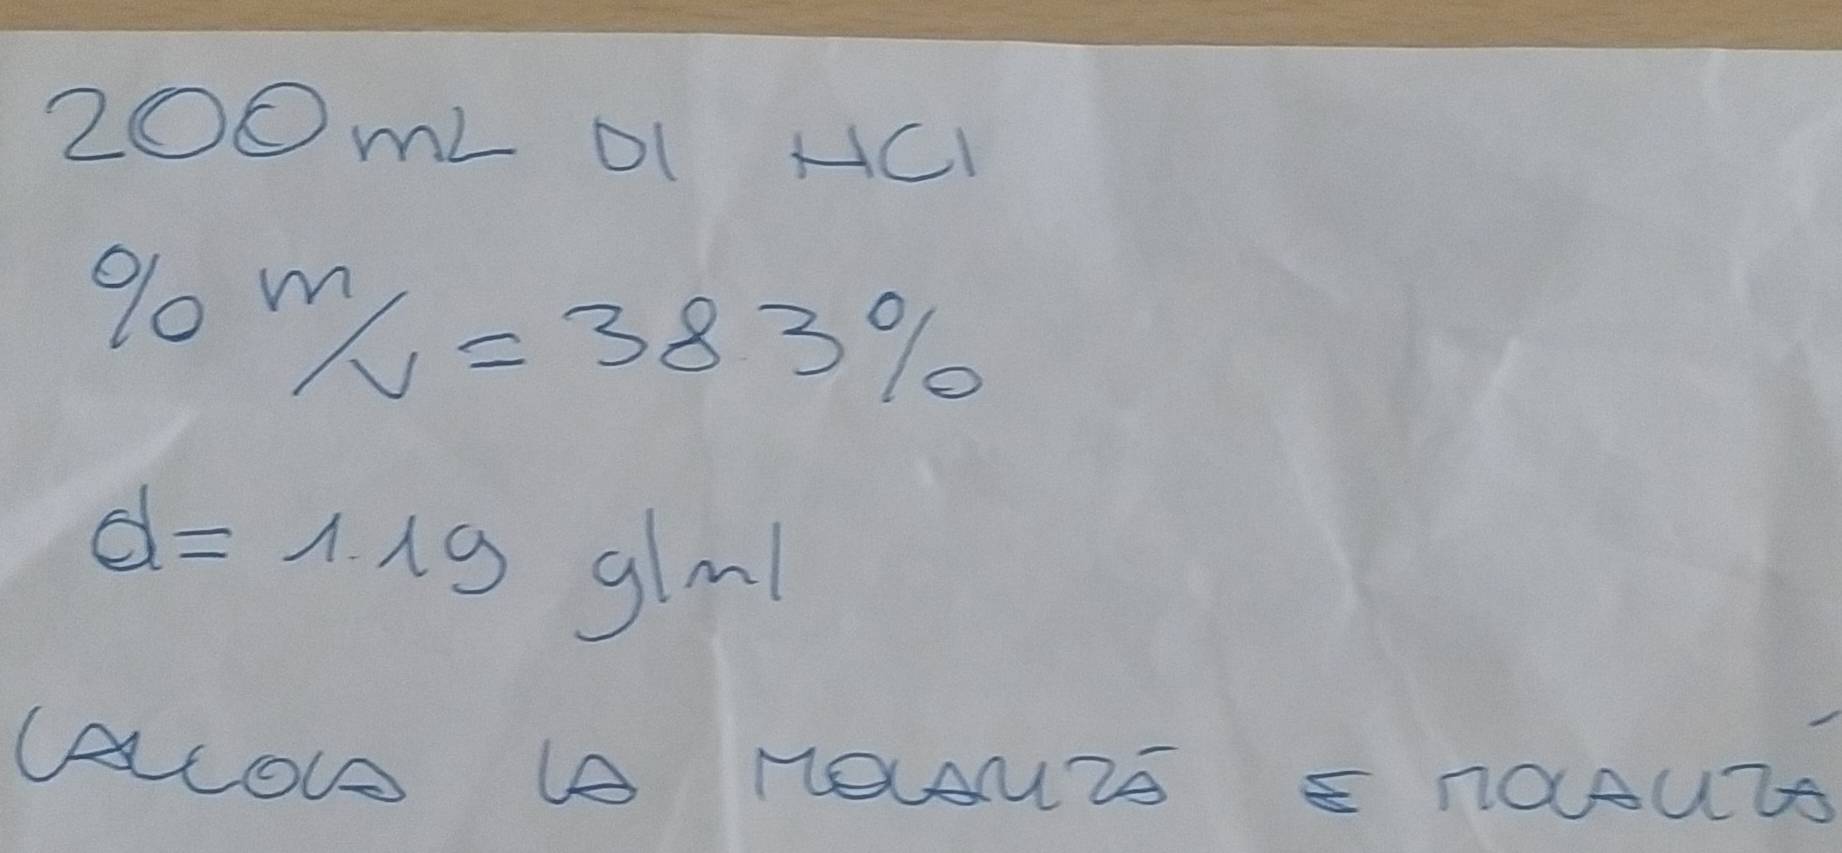 200 mL DI HCl
% m/v = 38.3%
d = 1.19 g/ml
CALCOLA LA MOLARITÀ E MOLALITÀ